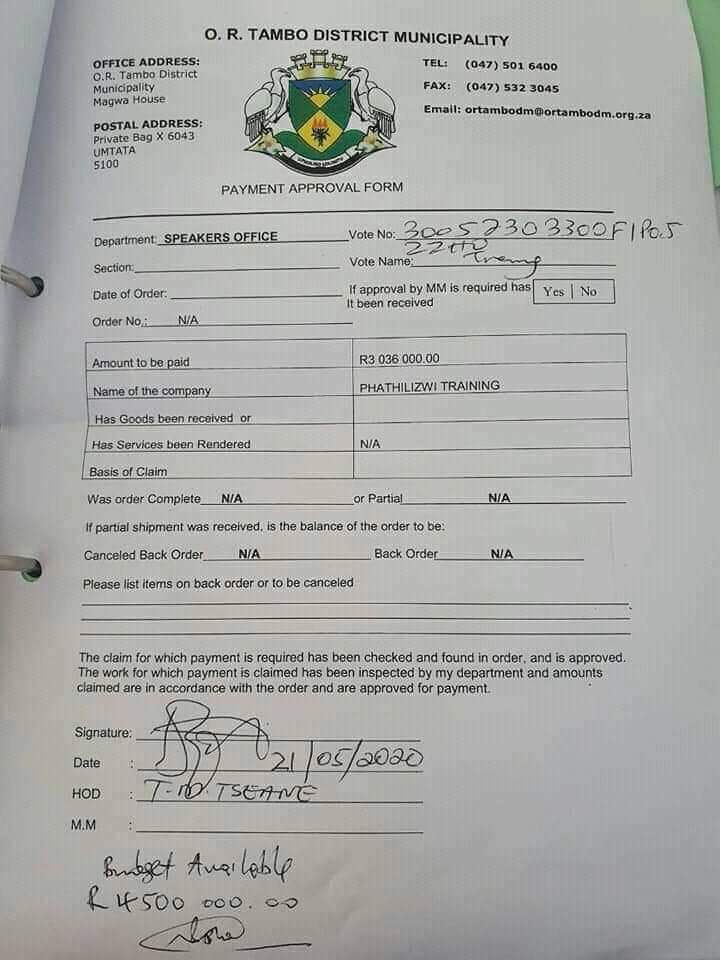 O. R. TAMBO DISTRICT MUNICIPALITY
OFFICE ADDRESS:
O.R. Tambo District
Municipality
Magwa House
POSTAL ADDRESS:
Private Bag X 6043
UMTATA
5100
TEL: (047) 501 6400
FAX: (047) 532 3045
Email: ortambodm@ortambodm.org.za
PAYMENT APPROVAL FORM
Department: SPEAKERS OFFICE
Vote No: 30052303300F1P0.5
22HO
Section:
Vote Name:
Date of Order:
If approval by MM is required has
It been received
Yes | No
Order No.: N/A
Amount to be paid R3 036 000.00
Name of the company PHATHILIZWI TRAINING
Has Goods been received or
Has Services been Rendered N/A
Basis of Claim
Was order Complete N/A or Partial N/A
If partial shipment was received, is the balance of the order to be:
Canceled Back Order N/A Back Order N/A
Please list items on back order or to be canceled
The claim for which payment is required has been checked and found in order, and is approved.
The work for which payment is claimed has been inspected by my department and amounts
claimed are in accordance with the order and are approved for payment.
Signature:
Date : 21/05/2020
HOD : T.M. TSEANE
M.M :
Budget Available
R 4500 000.00